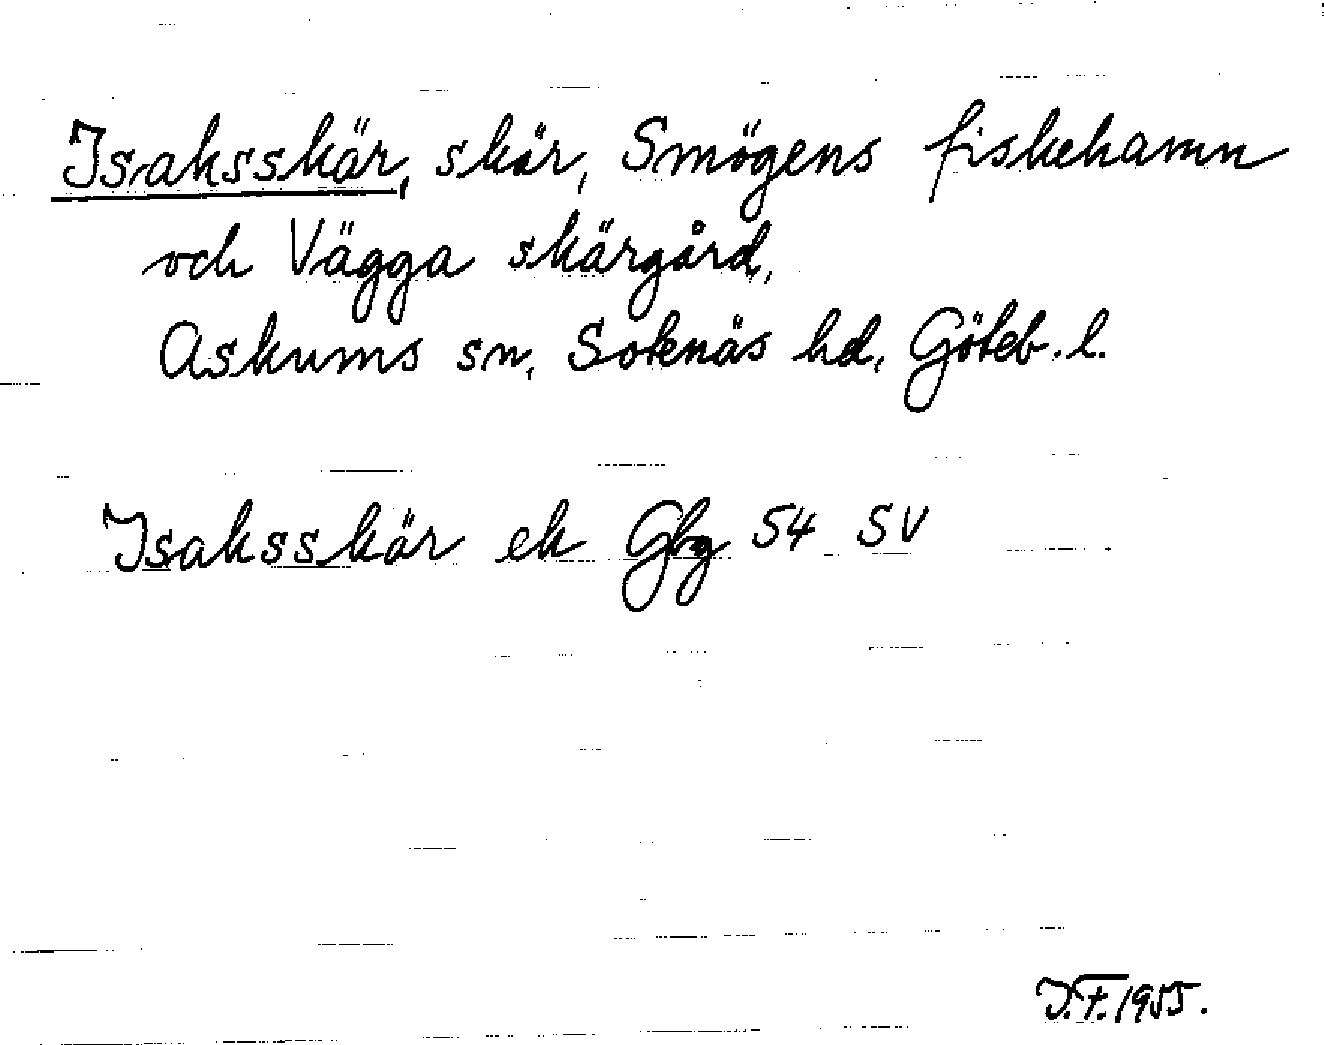 Isaksskär, skär, Smögens fiskehamn
och Vägga skärgård,
Askums sn, Sotenäs hd, Göteb. l.
Isaksskär ek Gbg 54 SV
D.F. 1955.